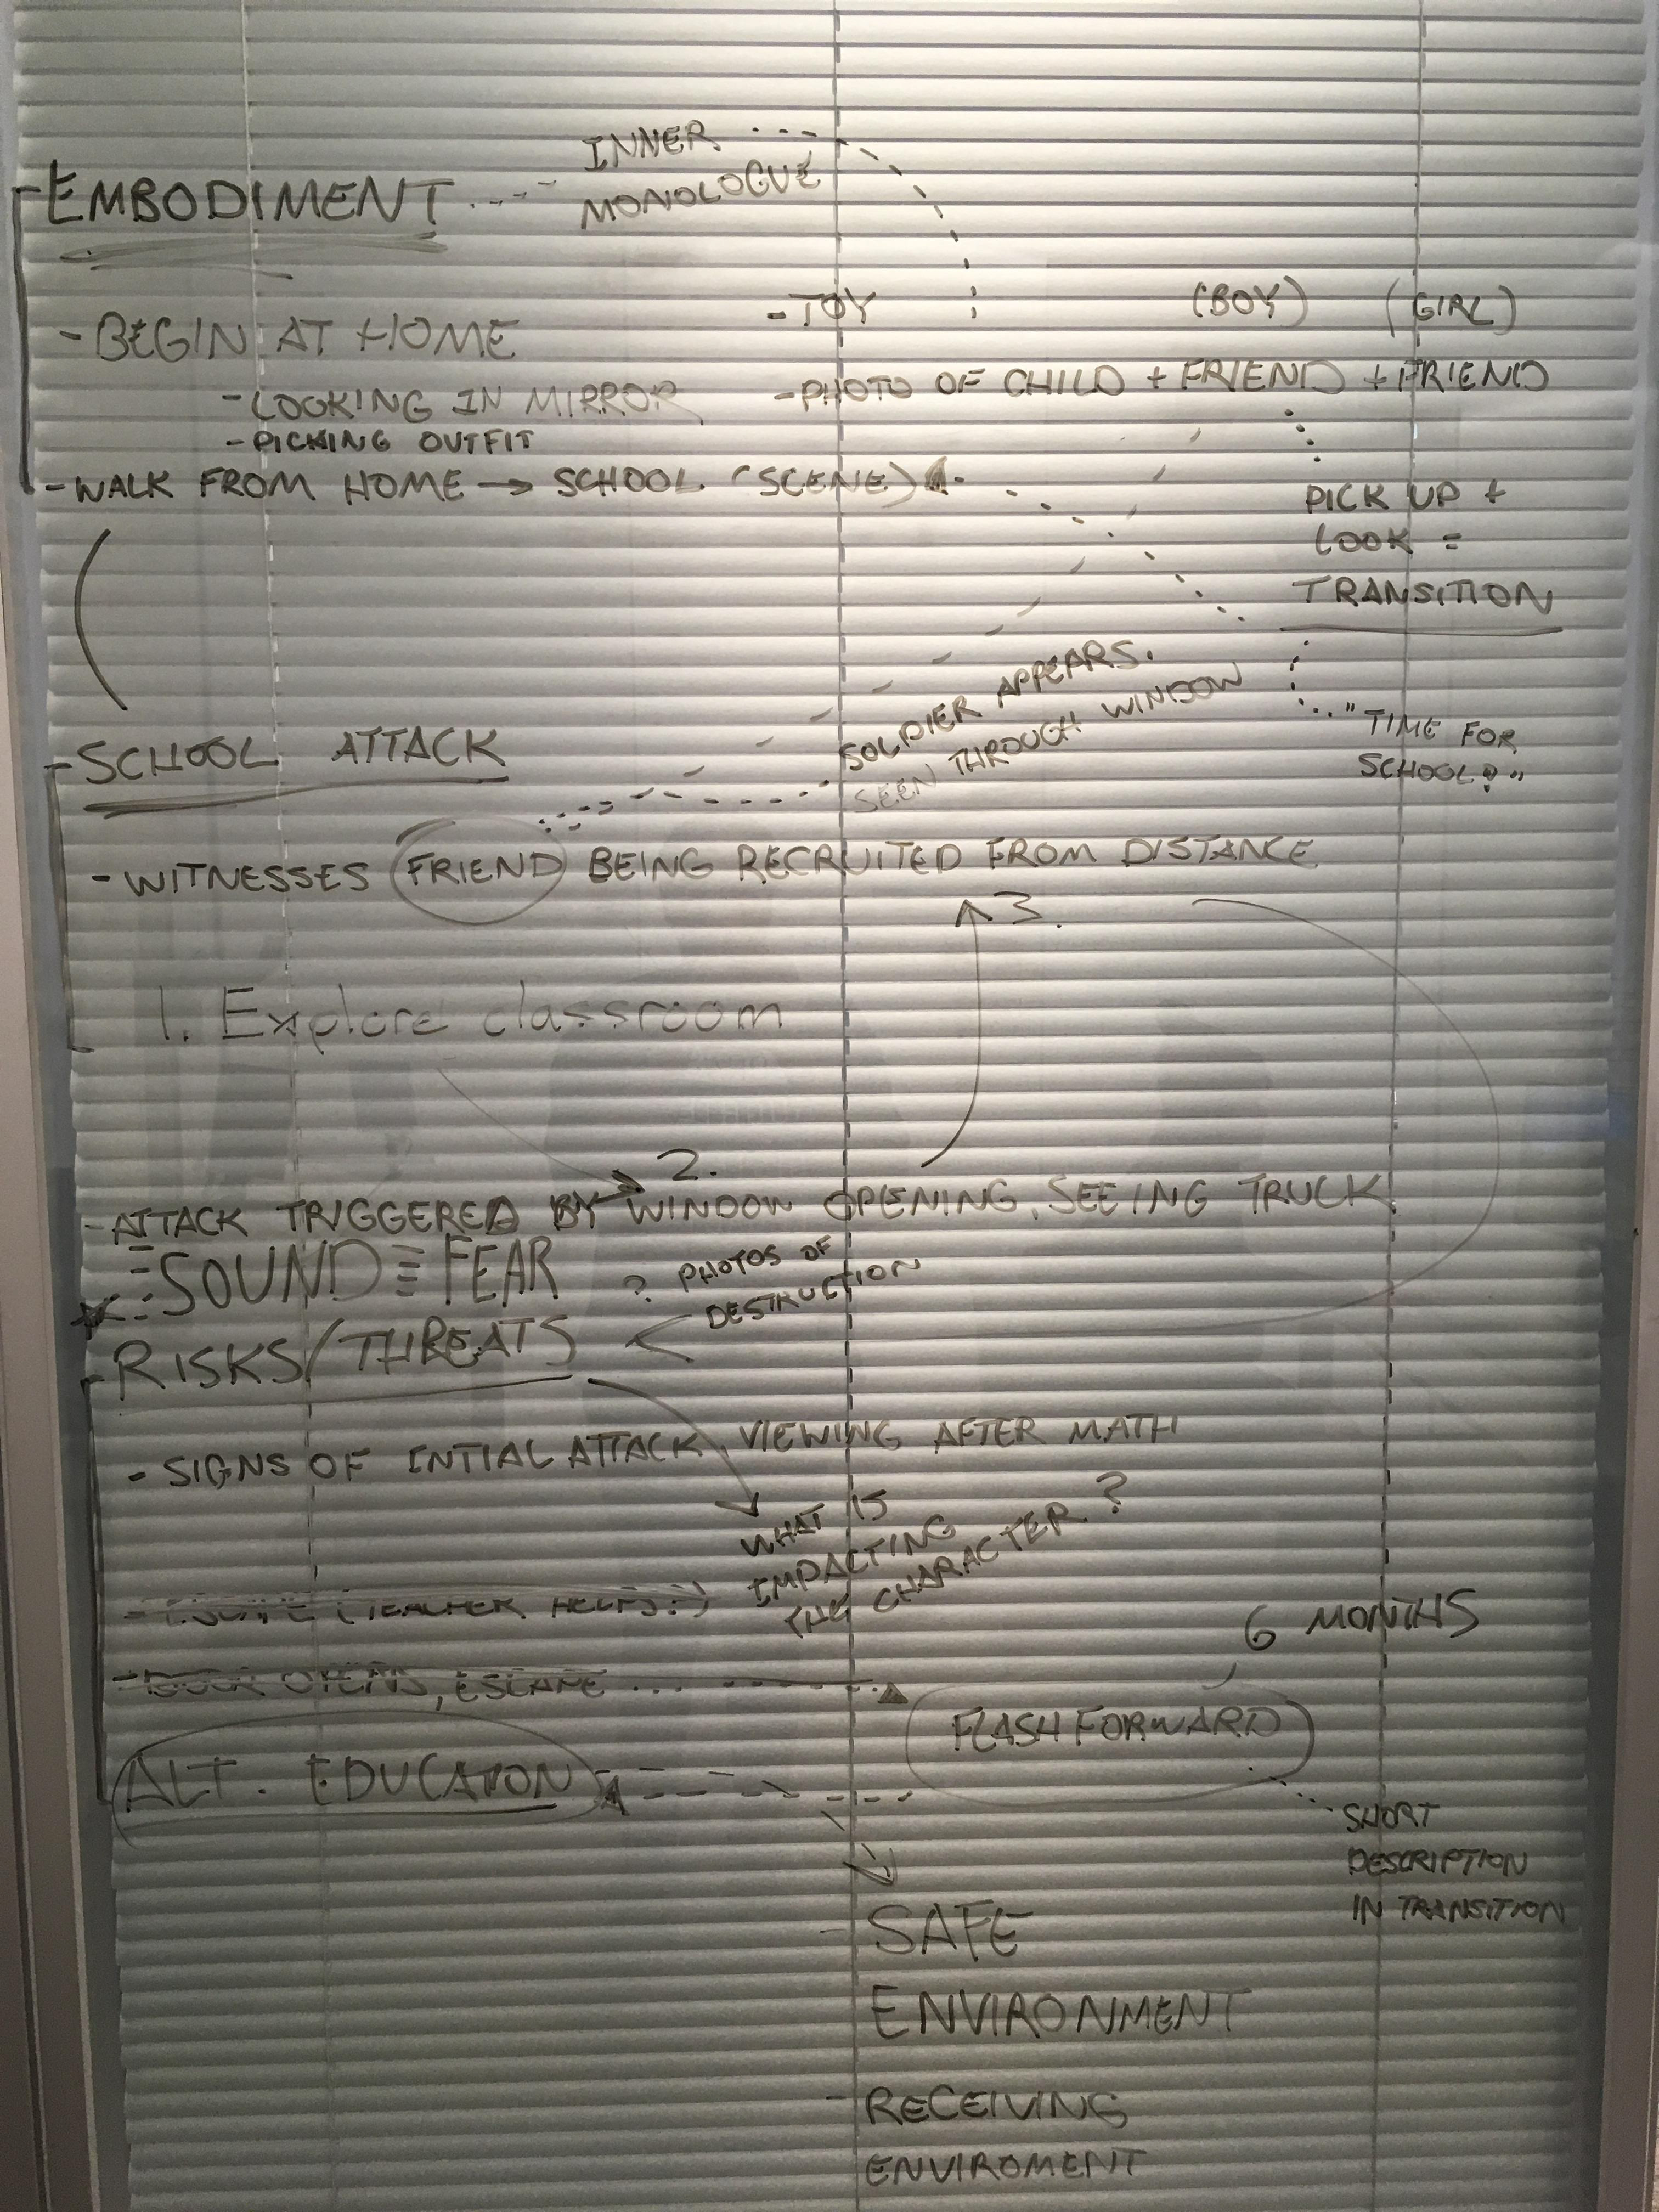 INNER
MONOLOGUE
- EMBODIMENT
- TOY
(BOY) (GIRL)
- BEGIN AT HOME
- PHOTO OF CHILD + FRIEND + FRIEND
- LOOKING IN MIRROR
- PICKING OUTFIT
- WALK FROM HOME → SCHOOL (SCENE)
PICK UP +
LOOK =
TRANSITION
"TIME FOR
SCHOOL!"
SOLDIER APPEARS.
SEEN THROUGH WINDOW
- SCHOOL ATTACK
- WITNESSES FRIEND BEING RECRUITED FROM DISTANCE
3.
1. Explore classroom
2.
- ATTACK TRIGGERED BY WINDOW OPENING, SEEING TRUCK
SOUND = FEAR
? PHOTOS OF
DESTRUCTION
- RISKS/THREATS
- SIGNS OF INTIAL ATTACK, VIEWING AFTER MATH
WHAT IS
IMPACTING
THE CHARACTER?
(TEACHER HELPS?)
6 MONTHS
- DOOR OPENS, ESCAPE ...
FLASH FORWARD
ALT. EDUCATON
SHORT
DESCRIPTION
IN TRANSITION
- SAFE
ENVIRONMENT
- RECEIVING
ENVIROMENT